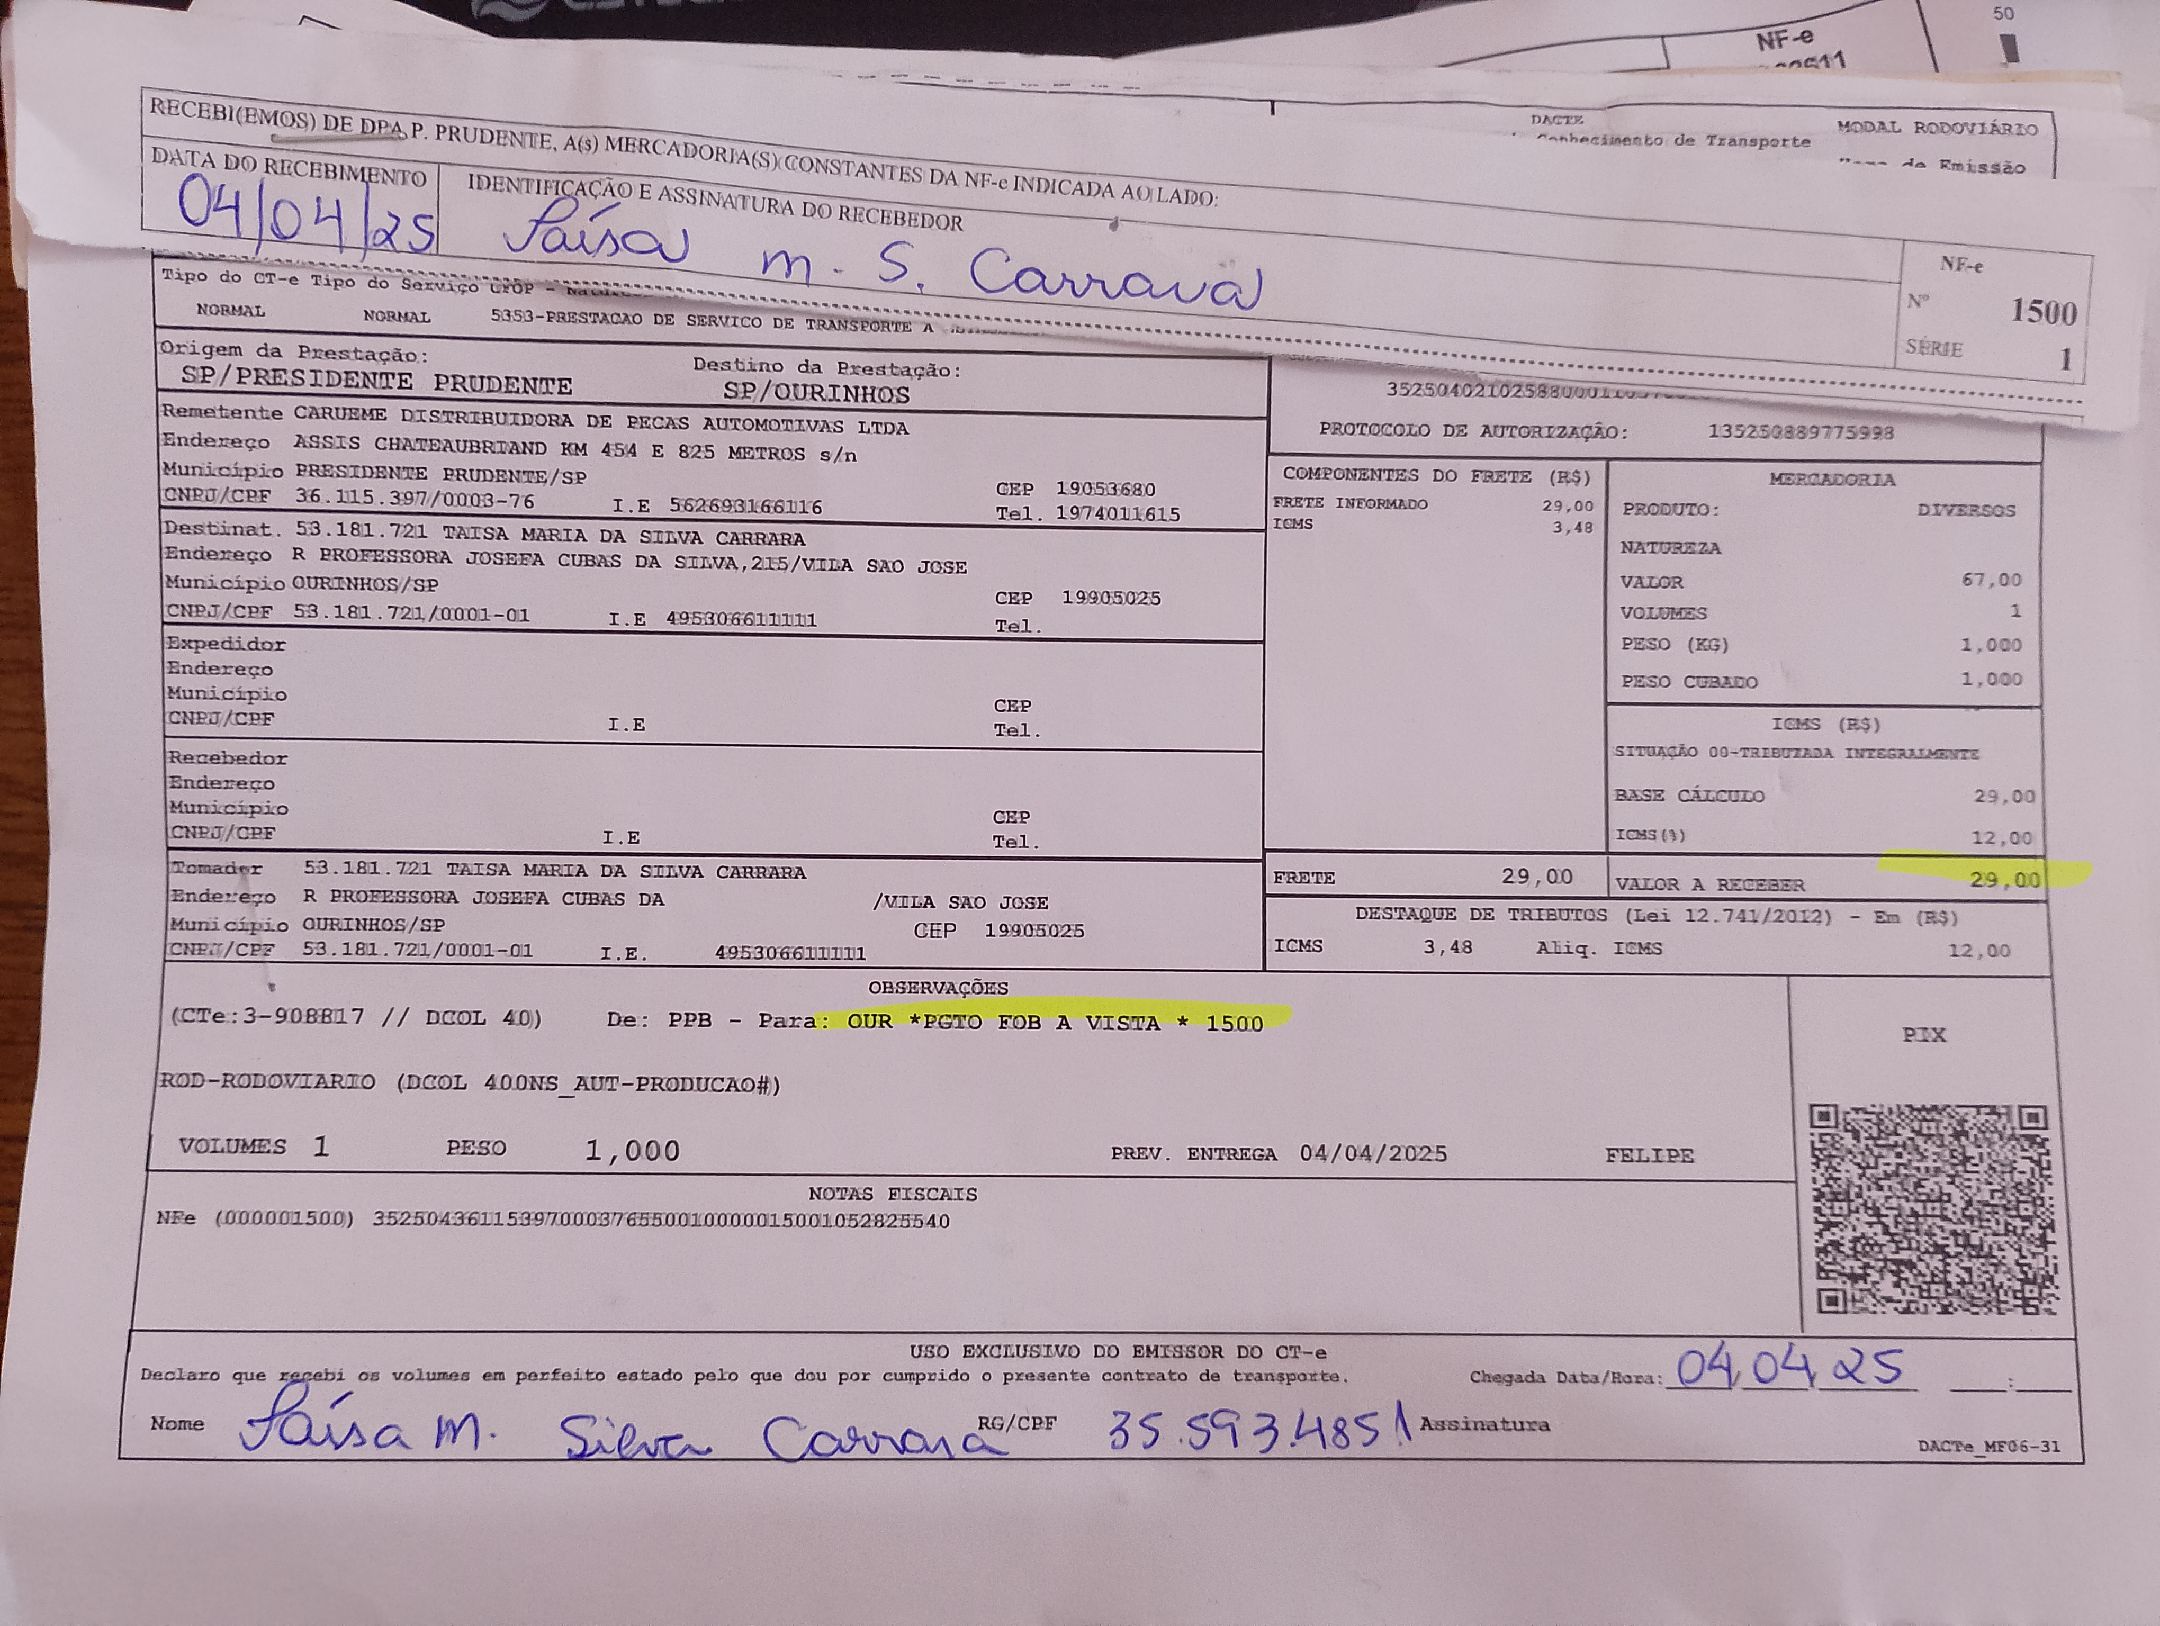 50
NF-e
RECEBI(EMOS) DE DPA P. PRUDENTE, A(S) MERCADORIA(S) CONSTANTES DA NF-e INDICADA AO LADO:
DATA DO RECEBIMENTO
04/04/25
IDENTIFICAÇÃO E ASSINATURA DO RECEBEDOR
Taísa m. S. Carrara
NF-e
Nº 1500
SÉRIE 1
DACTE
Conhecimento de Transporte
MODAL RODOVIÁRIO
de Emissão
Tipo do CT-e Tipo do Serviço CFOP -
NORMAL NORMAL 5353-PRESTACAO DE SERVICO DE TRANSPORTE A
Origem da Prestação: Destino da Prestação:
SP/PRESIDENTE PRUDENTE SP/OURINHOS
Remetente CARUEME DISTRIBUIDORA DE PECAS AUTOMOTIVAS LTDA
Endereço ASSIS CHATEAUBRIAND KM 454 E 825 METROS s/n
Município PRESIDENTE PRUDENTE/SP CEP 19053680
CNPJ/CPF 36.115.397/0003-76 I.E 562693166116 Tel. 1974011615
Destinat. 53.181.721 TAISA MARIA DA SILVA CARRARA
Endereço R PROFESSORA JOSEFA CUBAS DA SILVA,215/VILA SAO JOSE
Município OURINHOS/SP CEP 19905025
CNPJ/CPF 53.181.721/0001-01 I.E 495306611111 Tel.
Expedidor
Endereço
Município CEP
CNPJ/CPF I.E Tel.
Recebedor
Endereço
Município CEP
CNPJ/CPF I.E Tel.
Tomador 53.181.721 TAISA MARIA DA SILVA CARRARA
Endereço R PROFESSORA JOSEFA CUBAS DA /VILA SAO JOSE
Município OURINHOS/SP CEP 19905025
CNPJ/CPF 53.181.721/0001-01 I.E. 495306611111
PROTOCOLO DE AUTORIZAÇÃO: 135250889775998
COMPONENTES DO FRETE (R$)
FRETE INFORMADO 29,00
ICMS 3,48
MERCADORIA
PRODUTO: DIVERSOS
NATUREZA
VALOR 67,00
VOLUMES 1
PESO (KG) 1,000
PESO CUBADO 1,000
ICMS (R$)
SITUAÇÃO 00-TRIBUTADA INTEGRALMENTE
BASE CÁLCULO 29,00
ICMS(%) 12,00
FRETE 29,00 VALOR A RECEBER 29,00
DESTAQUE DE TRIBUTOS (Lei 12.741/2012) - Em (R$)
ICMS 3,48 Aliq. ICMS 12,00
OBSERVAÇÕES
(CTe:3-908817 // DCOL 40) De: PPB - Para: OUR *PGTO FOB A VISTA * 1500
ROD-RODOVIARIO (DCOL 400NS_AUT-PRODUCAO#)
VOLUMES 1 PESO 1,000 PREV. ENTREGA 04/04/2025 FELIPE
PIX
NOTAS FISCAIS
NFe (000001500) 35250436115397000376550010000015001052825540
USO EXCLUSIVO DO EMISSOR DO CT-e
Declaro que recebi os volumes em perfeito estado pelo que dou por cumprido o presente contrato de transporte. Chegada Data/Hora: 04 04 25 :
Nome Taísa M. Silva Carrara RG/CPF 35.593.485 1 Assinatura
DACTe_MF06-31